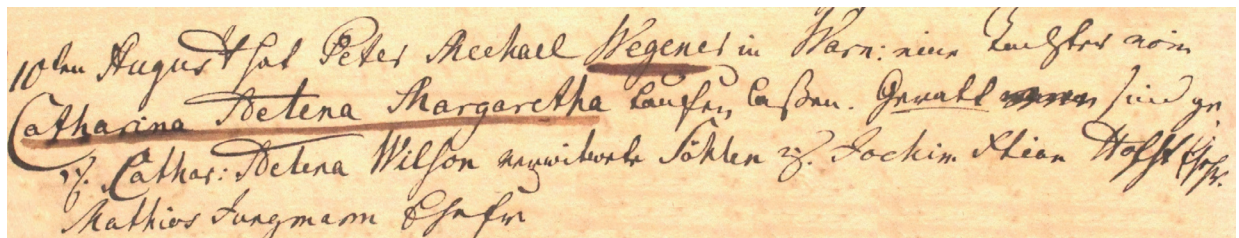 10ten August hat Peter Mechael Wegener in Warn: eine Tochter nom
Catharina Delena Margaretha taufen laßen. Gevatt sind ge
Cathar: Delena Wilson verwitwete Söhlen Jochim Hofst Ehefr.
Mathias Jungmann Ehefr